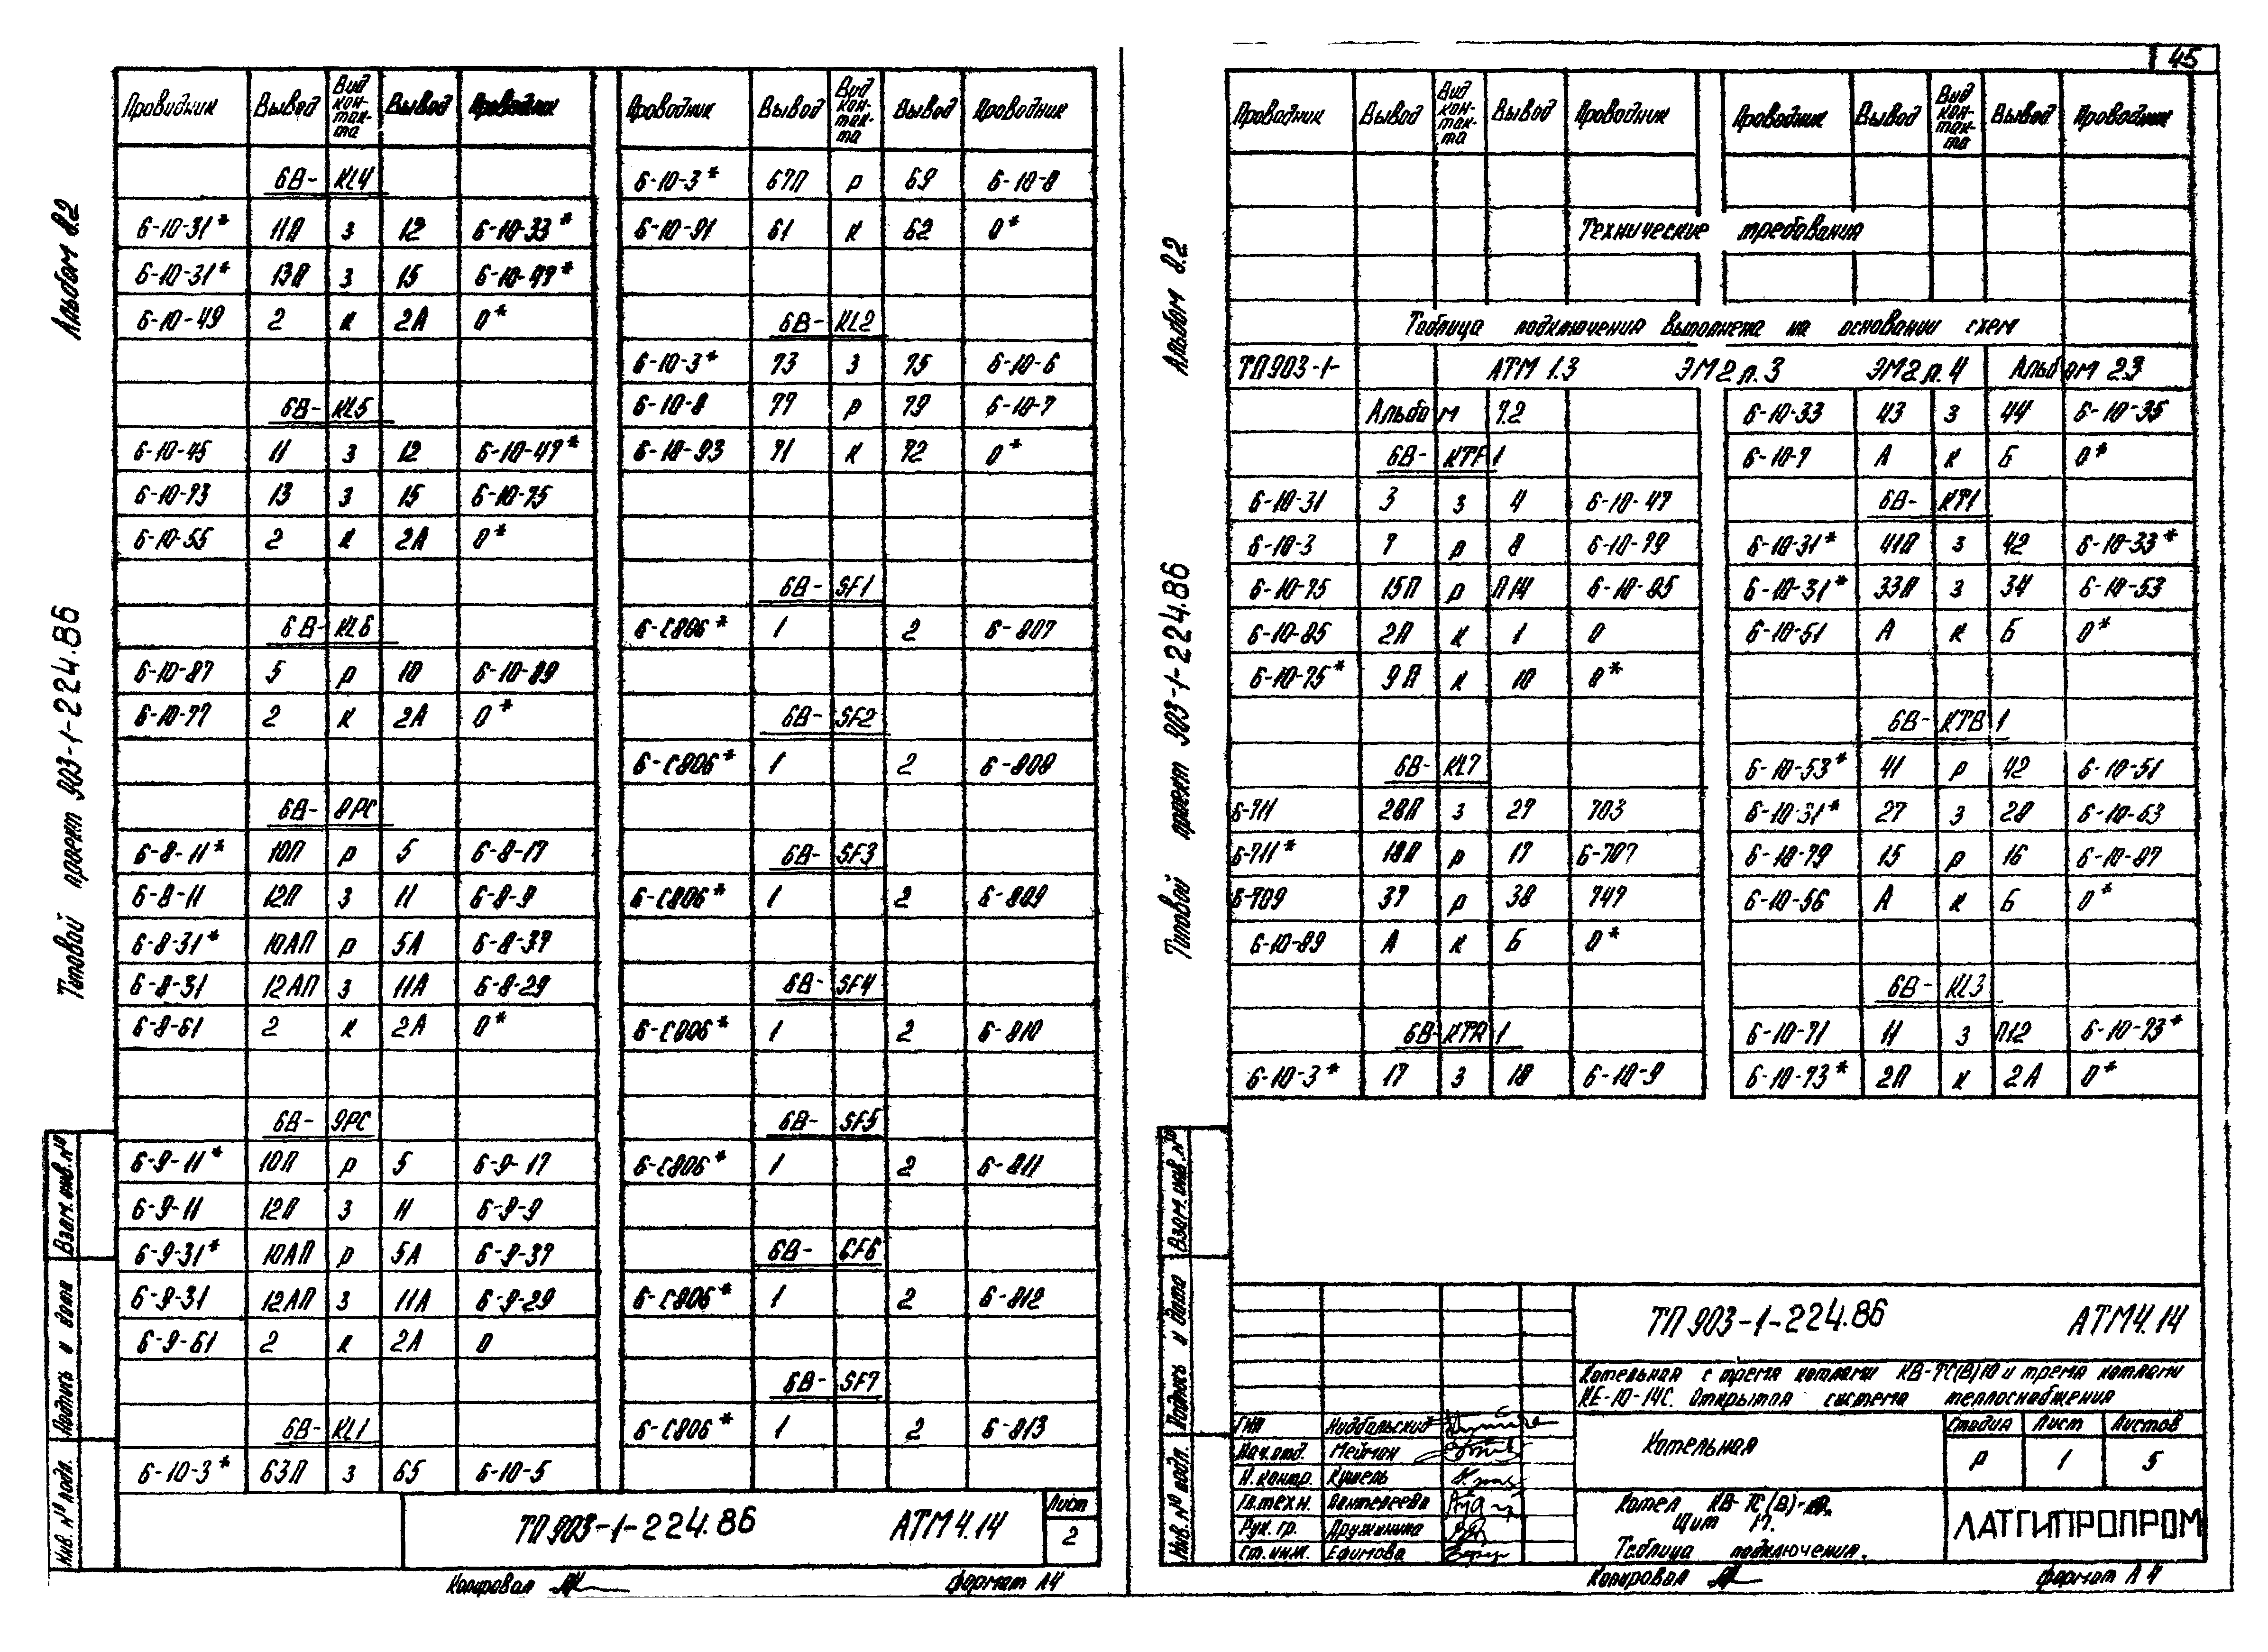 45
Альбом 8.2
Типовой проект 903-1-224.86
Взам. инв. №
Подпись и дата
Инв. № подл.
Проводник Вывод Вид контакта Вывод Проводник
6В-KL4
6-10-31* 11П з 12 6-10-33*
6-10-31* 13П з 15 6-10-47*
6-10-49 2 к 2А 0*
6В-KL5
6-10-45 11 з 12 6-10-47*
6-10-73 13 з 15 6-10-75
6-10-55 2 к 2А 0*
6В-KL6
6-10-87 5 р 10 6-10-89
6-10-77 2 к 2А 0*
6В-8РС
6-8-11* 10П р 5 6-8-17
6-8-11 12П з 11 6-8-9
6-8-31* 10АП р 5А 6-8-37
6-8-31 12АП з 11А 6-8-29
6-8-61 2 к 2А 0*
6В-9РС
6-9-11* 10П р 5 6-9-17
6-9-11 12П з 11 6-9-9
6-9-31* 10АП р 5А 6-9-37
6-9-31 12АП з 11А 6-9-29
6-9-61 2 к 2А 0
6В-KL1
6-10-3* 63П з 65 6-10-5
Проводник Вывод Вид контакта Вывод Проводник
6-10-3* 67П р 69 6-10-8
6-10-91 61 к 62 0*
6В-KL2
6-10-3* 73 з 75 6-10-6
6-10-8 77 р 79 6-10-7
6-10-93 71 к 72 0*
6В-SF1
6-С806* 1 2 6-807
6В-SF2
6-С806* 1 2 6-808
6В-SF3
6-С806* 1 2 6-809
6В-SF4
6-С806* 1 2 6-810
6В-SF5
6-С806* 1 2 6-811
6В-GF6
6-С806* 1 2 6-812
6В-SF7
6-С806* 1 2 6-813
ТП 903-1-224.86 АТМ4.14
Лист
2
Копировал
формат А4
Альбом 8.2
Типовой проект 903-1-224.86
Взам. инв. №
Подпись и дата
Инв. № подл.
Проводник Вывод Вид контакта Вывод Проводник
Проводник Вывод Вид контакта Вывод Проводник
Технические требования
Таблица подключения выполнена на основании схем
ТП903-1- АТМ 1.3 ЭМ2л.3 ЭМ2л.4 Альбом 2.3
Альбом 7.2
6В-KTF1
6-10-31 3 з 4 6-10-47
6-10-3 7 р 8 6-10-79
6-10-75 15П р П14 6-10-85
6-10-85 2П к 1 0
6-10-75* 9П к 10 0*
6В-KL7
6-711 28П з 27 703
6-711* 18П р 17 6-707
6-709 37 р 38 747
6-10-89 А к Б 0*
6В-KTR1
6-10-3* 17 з 18 6-10-9
6-10-33 43 з 44 6-10-35
6-10-7 А к Б 0*
6В-KT1
6-10-31* 41П з 42 6-10-33*
6-10-31* 33П з 34 6-10-53
6-10-51 А к Б 0*
6В-KTB1
6-10-53* 41 р 42 6-10-51
6-10-31* 27 з 28 6-10-63
6-10-79 15 р 16 6-10-87
6-10-56 А к Б 0*
6В-KL3
6-10-71 11 з П12 6-10-73*
6-10-73* 2П к 2А 0*
ТП 903-1-224.86 АТМ4.14
Котельная с тремя котлами КВ-ТС(В)10 и тремя котлами
КЕ-10-14С. Открытая система теплоснабжения
ГИП Нидбальский
Нач.отд. Мейман
Н. контр. Кушель
Гл.техн. Пантелеева
Рук. гр. Дружинина
Ст. инж. Ефимова
Котельная
Стадия Лист Листов
Р 1 5
Котел КВ-ТС(В)-10.
Щит 17.
Таблица подключения.
ЛАТГИПРОПРОМ
Копировал
формат А4